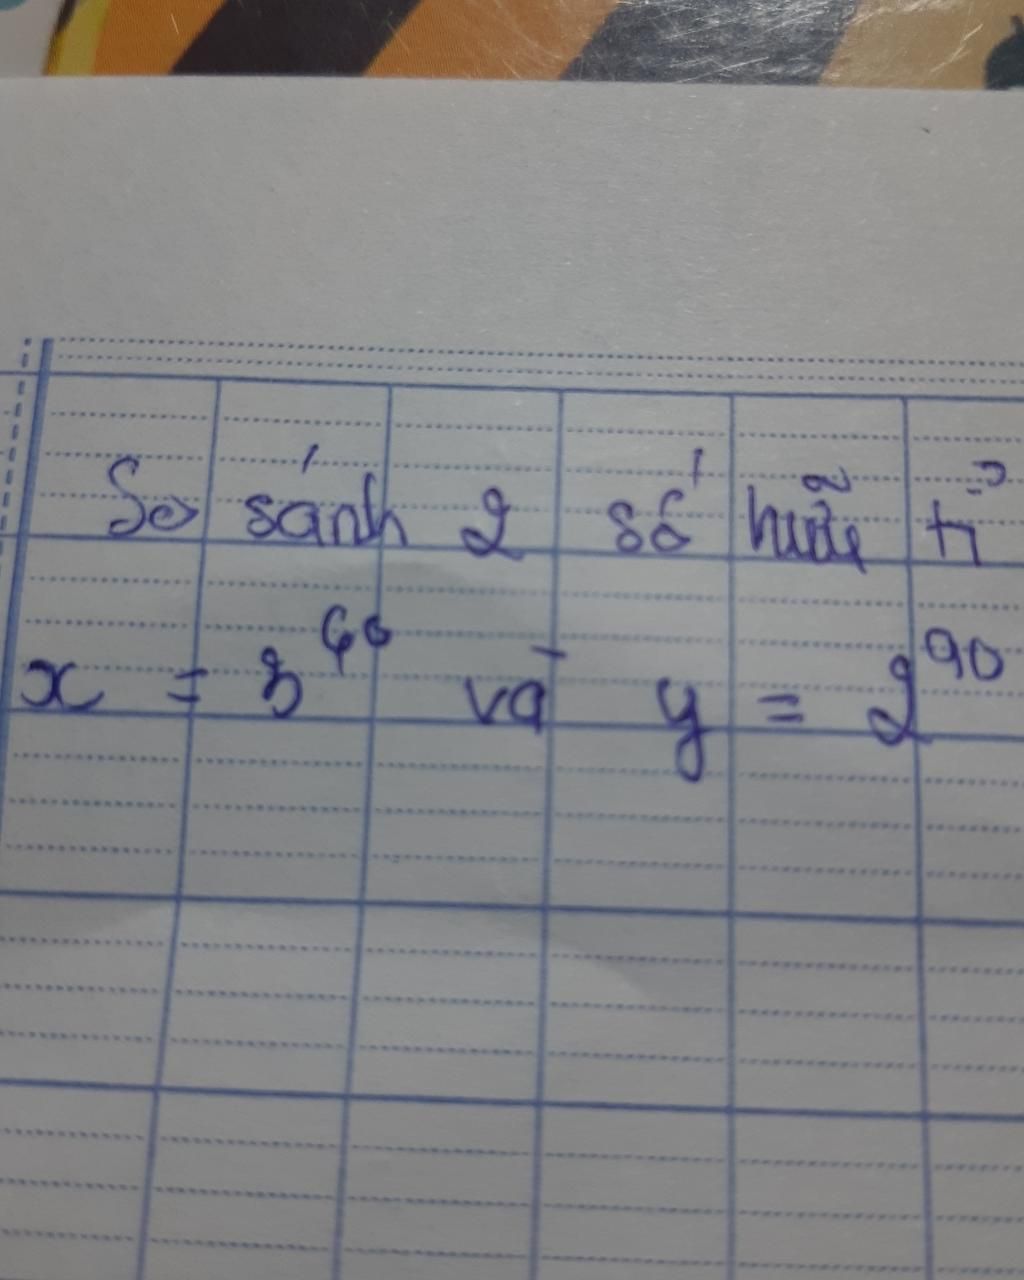 So sánh 2 số hữu tỉ
x = 3⁶⁰ và y = 2⁹⁰